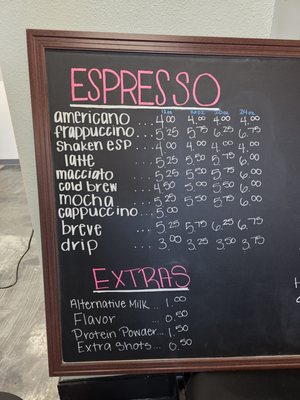 ESPRESSO
12oz 16oz 20oz 24oz
americano ... 4.00 4.00 4.00 4.00
frappuccino ... 5.25 5.75 6.25 6.75
Shaken esp ... 4.00 4.00 4.00 4.00
latte ... 5.25 5.50 5.75 6.00
macciato ... 5.25 5.50 5.75 6.00
cold brew ... 4.50 5.00 5.50 6.00
mocha ... 5.25 5.50 5.75 6.00
cappuccino ... 5.00
breve ... 5.25 5.75 6.25 6.75
drip ... 3.00 3.25 3.50 3.75
EXTRAS
Alternative Milk ... 1.00
Flavor ... 0.50
Protein Powder ... 1.50
Extra Shots ... 0.50